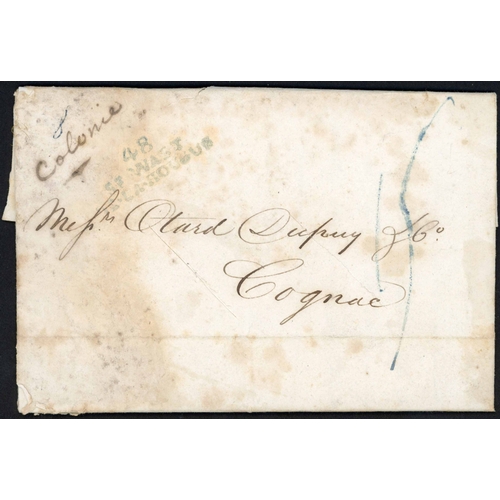 Colonie
48
ST WAST
Mess.rs Otard Dupuy & Co.
Cognac